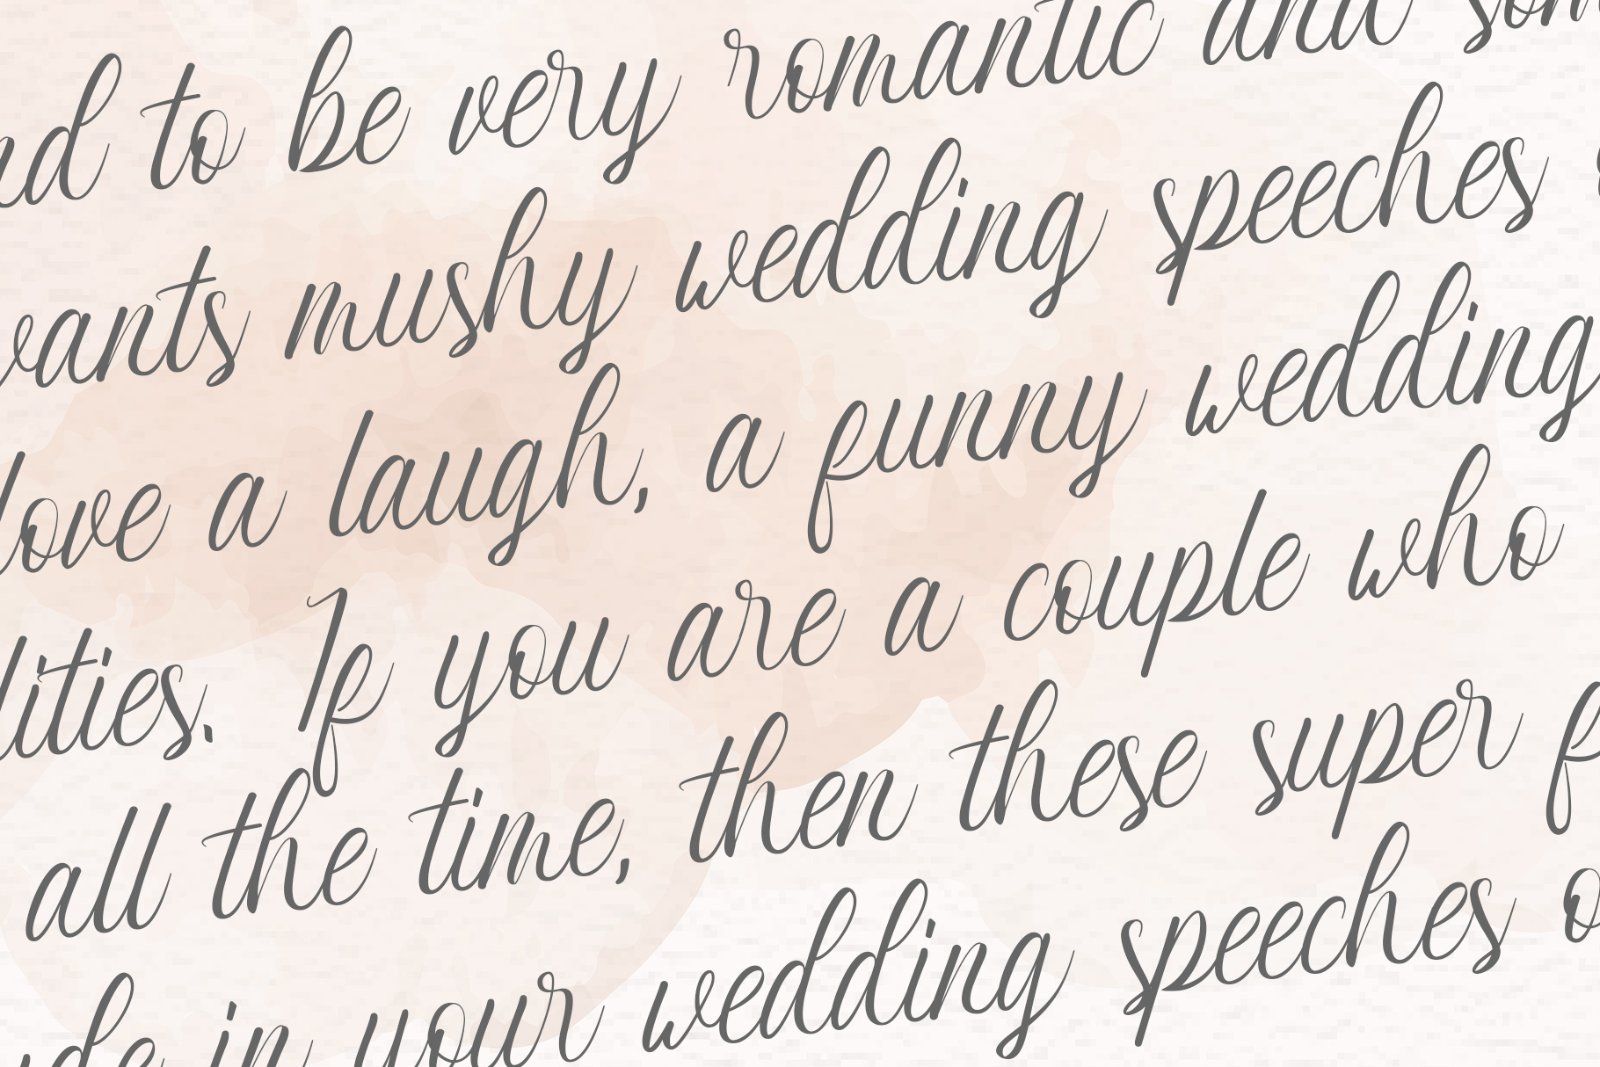 to be very romantic and
wants mushy wedding speeches
love a laugh, a funny wedding
If you are a couple who
all the time, then these super
in your wedding speeches